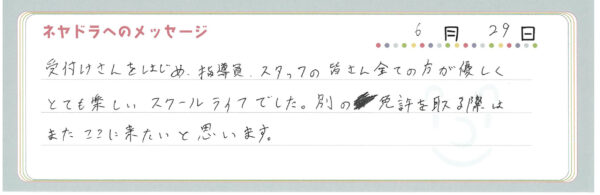 ネヤドラへのメッセージ 6月29日
受付けさんをはじめ、指導員、スタッフの皆さん全ての方が優しく
とても楽しいスクールライフでした。別の免許を取る際は
またここに来たいと思います。